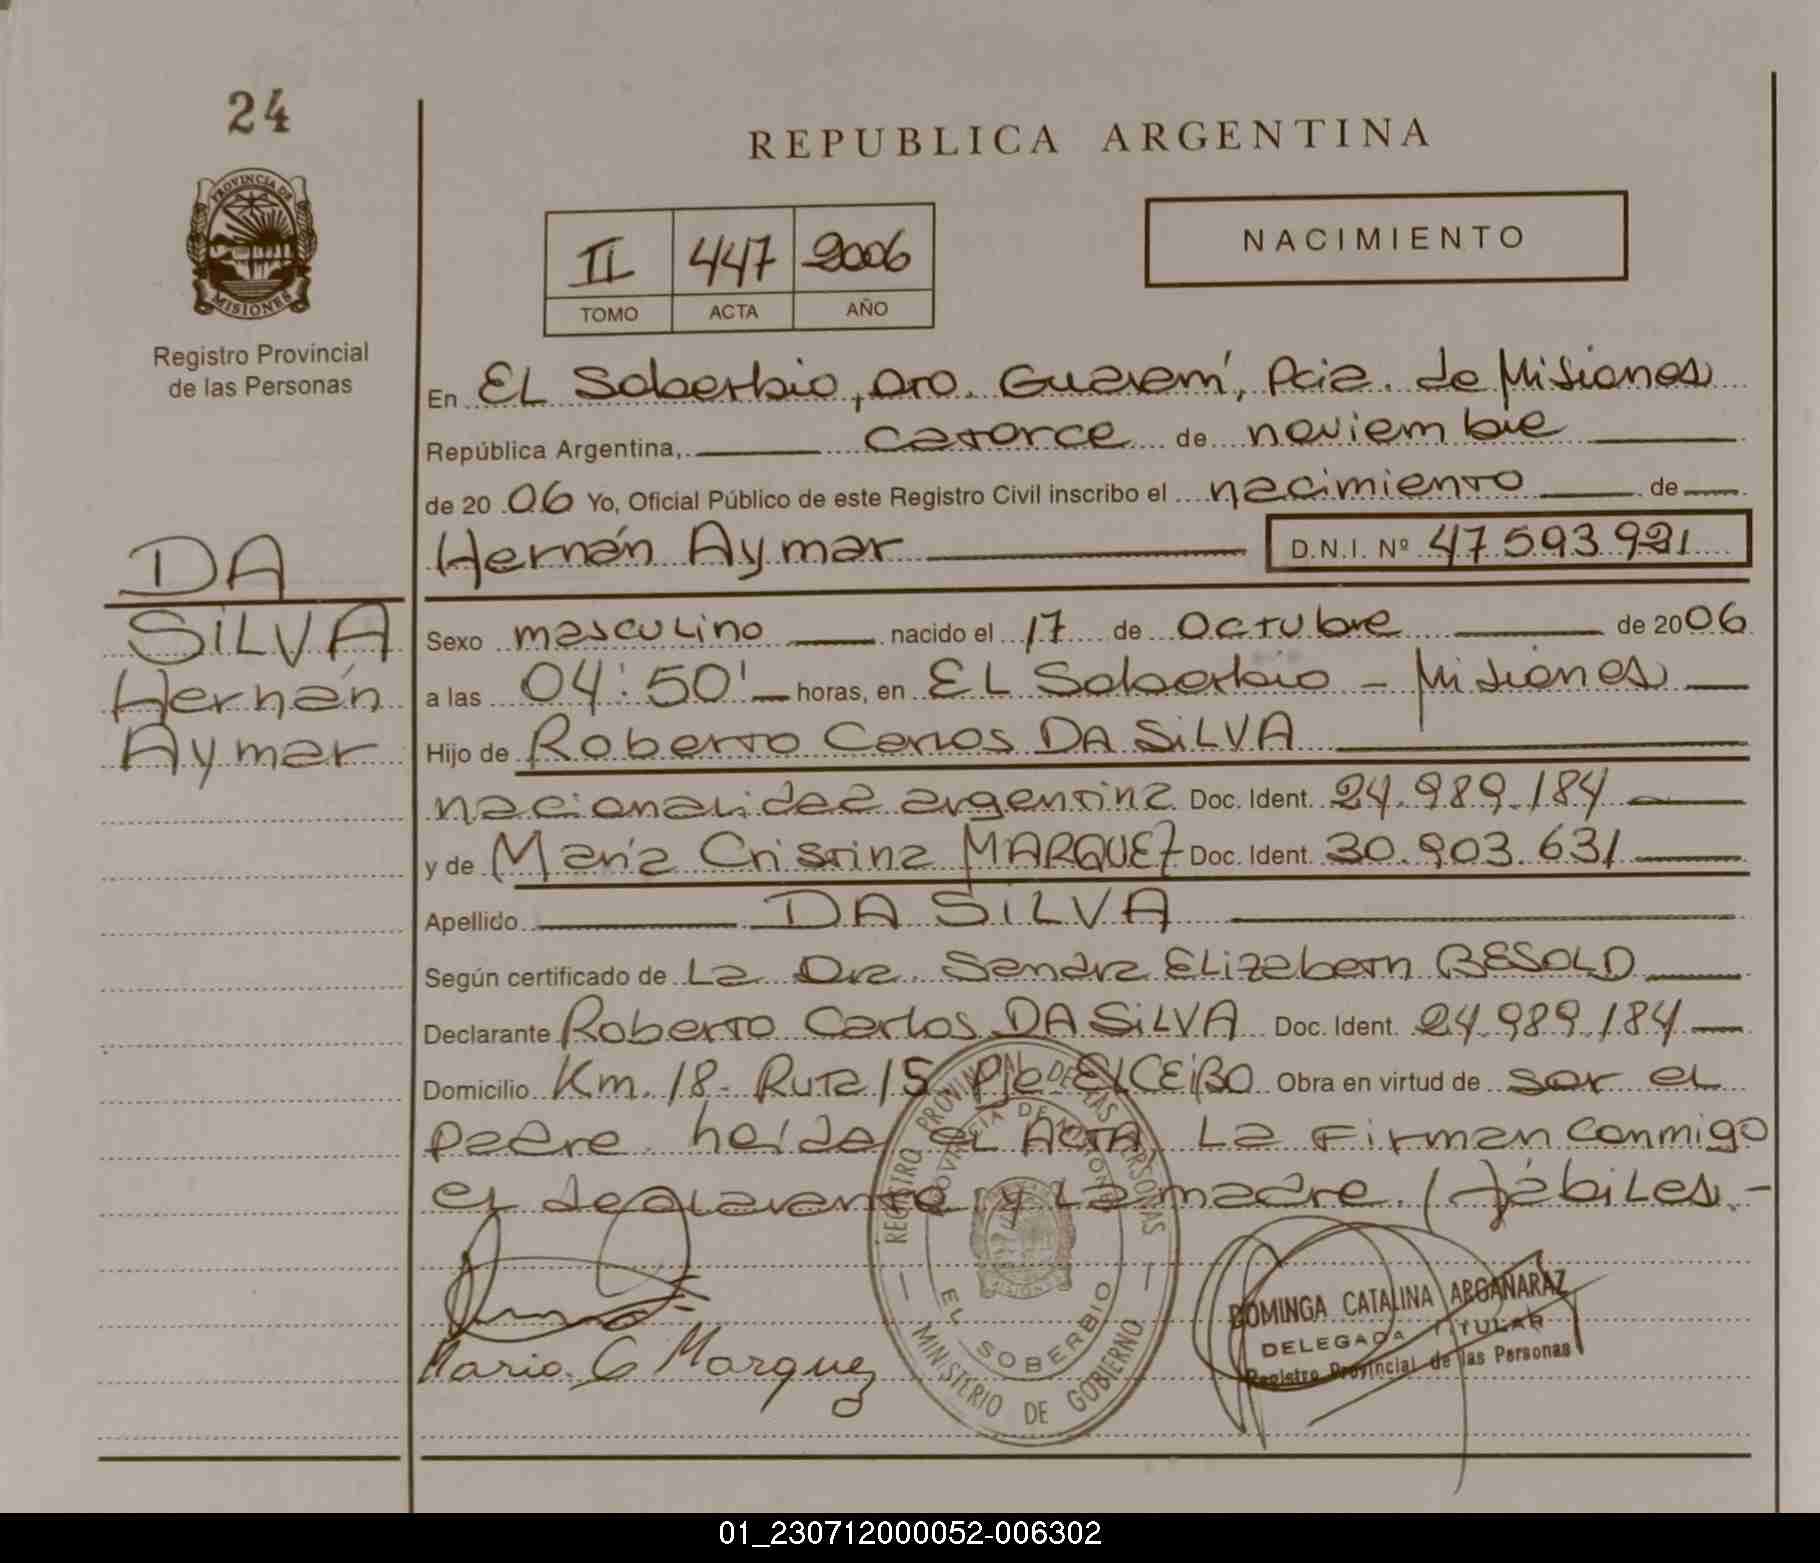 24
REPUBLICA ARGENTINA
PROVINCIA DE
MISIONES
Registro Provincial
de las Personas
II 447 2006
TOMO ACTA AÑO
NACIMIENTO
En EL Soberbio, Dto. Guaraní, Pcia. de Misiones
República Argentina, catorce de noviembre
de 2006 Yo, Oficial Público de este Registro Civil inscribo el nacimiento de
Hernán Aymar D.N.I. Nº 47.593.921
DA
SILVA
Hernán
Aymar
Sexo masculino nacido el 17 de Octubre de 2006
a las 04:50' horas, en EL Soberbio - Misiones
Hijo de Roberto Carlos DA SILVA
nacionalidad argentina Doc. Ident. 24.989.184
y de María Cristina MARQUEZ Doc. Ident. 30.903.631
Apellido DA SILVA
Según certificado de La Dra. Sandra Elizabeth BESOLD
Declarante Roberto Carlos DA SILVA Doc. Ident. 24.989.184
Domicilio Km. 18 - Ruta 15 Pje El CEIBO Obra en virtud de ser el
padre. Leída el Acta, La Firman conmigo
el declarante y La madre. / Hábiles. -
Maria C Marquez
REGISTRO PROVINCIAL DE LAS PERSONAS
PROVINCIA DE MISIONES
EL SOBERBIO
MINISTERIO DE GOBIERNO
DOMINGA CATALINA ARGAÑARAZ
DELEGADA TITULAR
Registro Provincial de las Personas
01_230712000052-006302